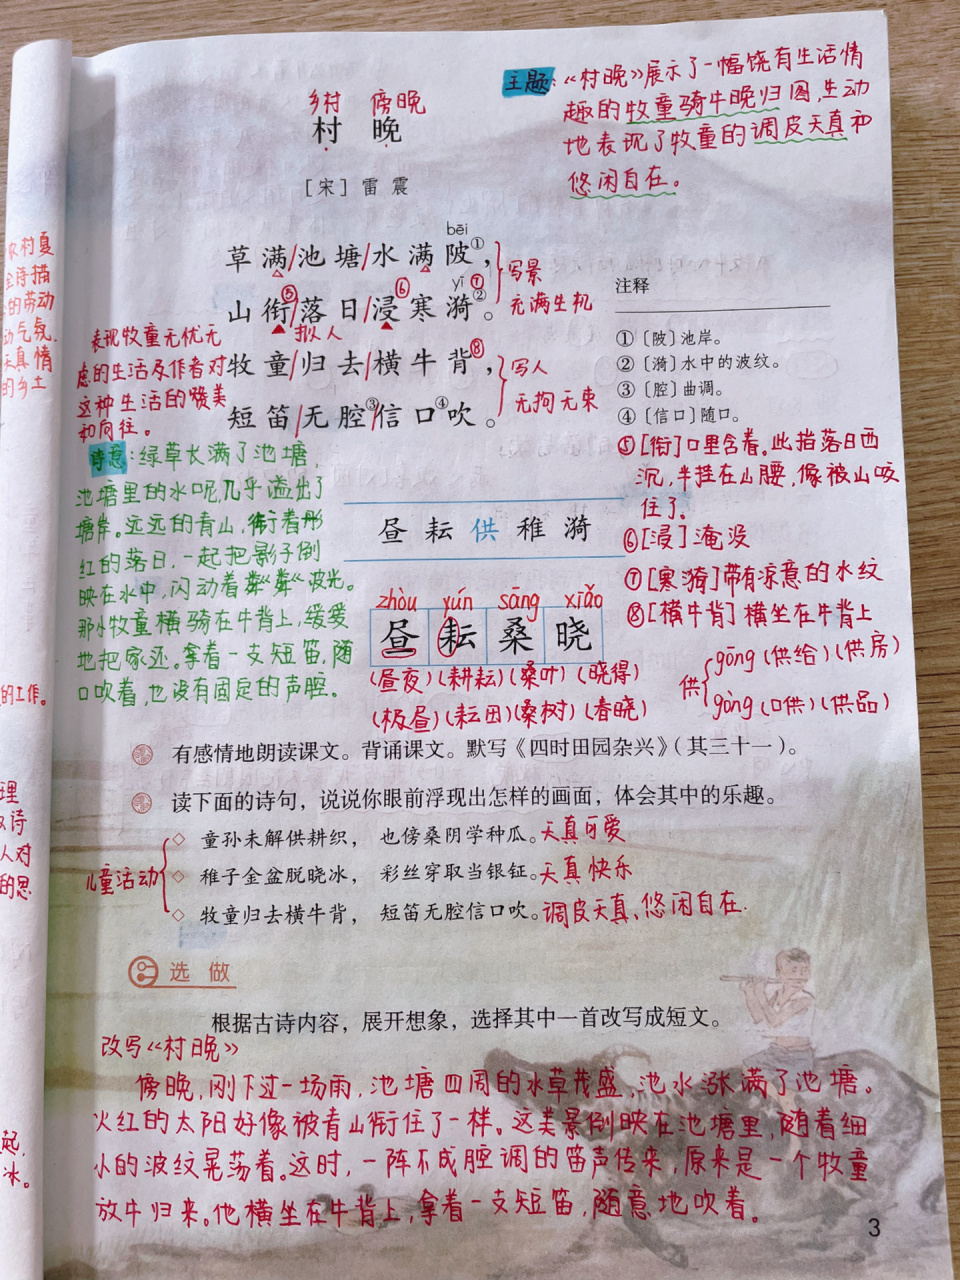 主题:《村晚》展示了一幅饶有生活情
趣的牧童骑牛晚归图,生动
地表现了牧童的调皮天真和
悠闲自在。
乡村 傍晚
村 晚
[宋] 雷 震
bēi
草满/池塘/水满陂①,
yī ⑦
山衔⑤/落日/浸⑥寒漪②。
拟人
牧童/归去/横牛背⑧,
短笛/无腔③/信口④吹。
写景
充满生机
写人
无拘无束
表现牧童无忧无
虑的生活及作者对
这种生活的赞美
和向往。
农村夏
全诗描
的劳动
动气氛.
天真情
的乡土
诗意:绿草长满了池塘,
池塘里的水呢,几乎溢出了
塘岸。远远的青山,衔着彤
红的落日,一起把影子倒
映在水中,闪动着粼粼波光。
那小牧童横骑在牛背上,缓缓
地把家还。拿着一支短笛,随
口吹着,也没有固定的声腔。
注释
①〔陂〕池岸。
②〔漪〕水中的波纹。
③〔腔〕曲调。
④〔信口〕随口。
⑤[衔]口里含着。此指落日西
沉,半挂在山腰,像被山咬
住了。
⑥[浸]淹没
⑦[寒漪]带有凉意的水纹
⑧[横牛背]横坐在牛背上
供{gōng(供给)(供房)
gòng(口供)(供品)
昼 耘 供 稚 漪
zhòu yún sāng xiǎo
昼 耘 桑 晓
(昼夜)(耕耘)(桑叶)(晓得)
(极昼)(耘田)(桑树)(春晓)
的工作。
理
诗
人对
的思
有感情地朗读课文。背诵课文。默写《四时田园杂兴》(其三十一)。
读下面的诗句,说说你眼前浮现出怎样的画面,体会其中的乐趣。
儿童活动
◇ 童孙未解供耕织, 也傍桑阴学种瓜。天真可爱
◇ 稚子金盆脱晓冰, 彩丝穿取当银钲。天真快乐
◇ 牧童归去横牛背, 短笛无腔信口吹。调皮天真、悠闲自在.
选做
根据古诗内容,展开想象,选择其中一首改写成短文。
改写《村晚》
傍晚,刚下过一场雨,池塘四周的水草茂盛,池水涨满了池塘。
火红的太阳好像被青山衔住了一样。这美景倒映在池塘里,随着细
小的波纹晃荡着。这时,一阵不成腔调的笛声传来,原来是一个牧童
放牛归来。他横坐在牛背上,拿着一支短笛,随意地吹着。
起,
冰。
3